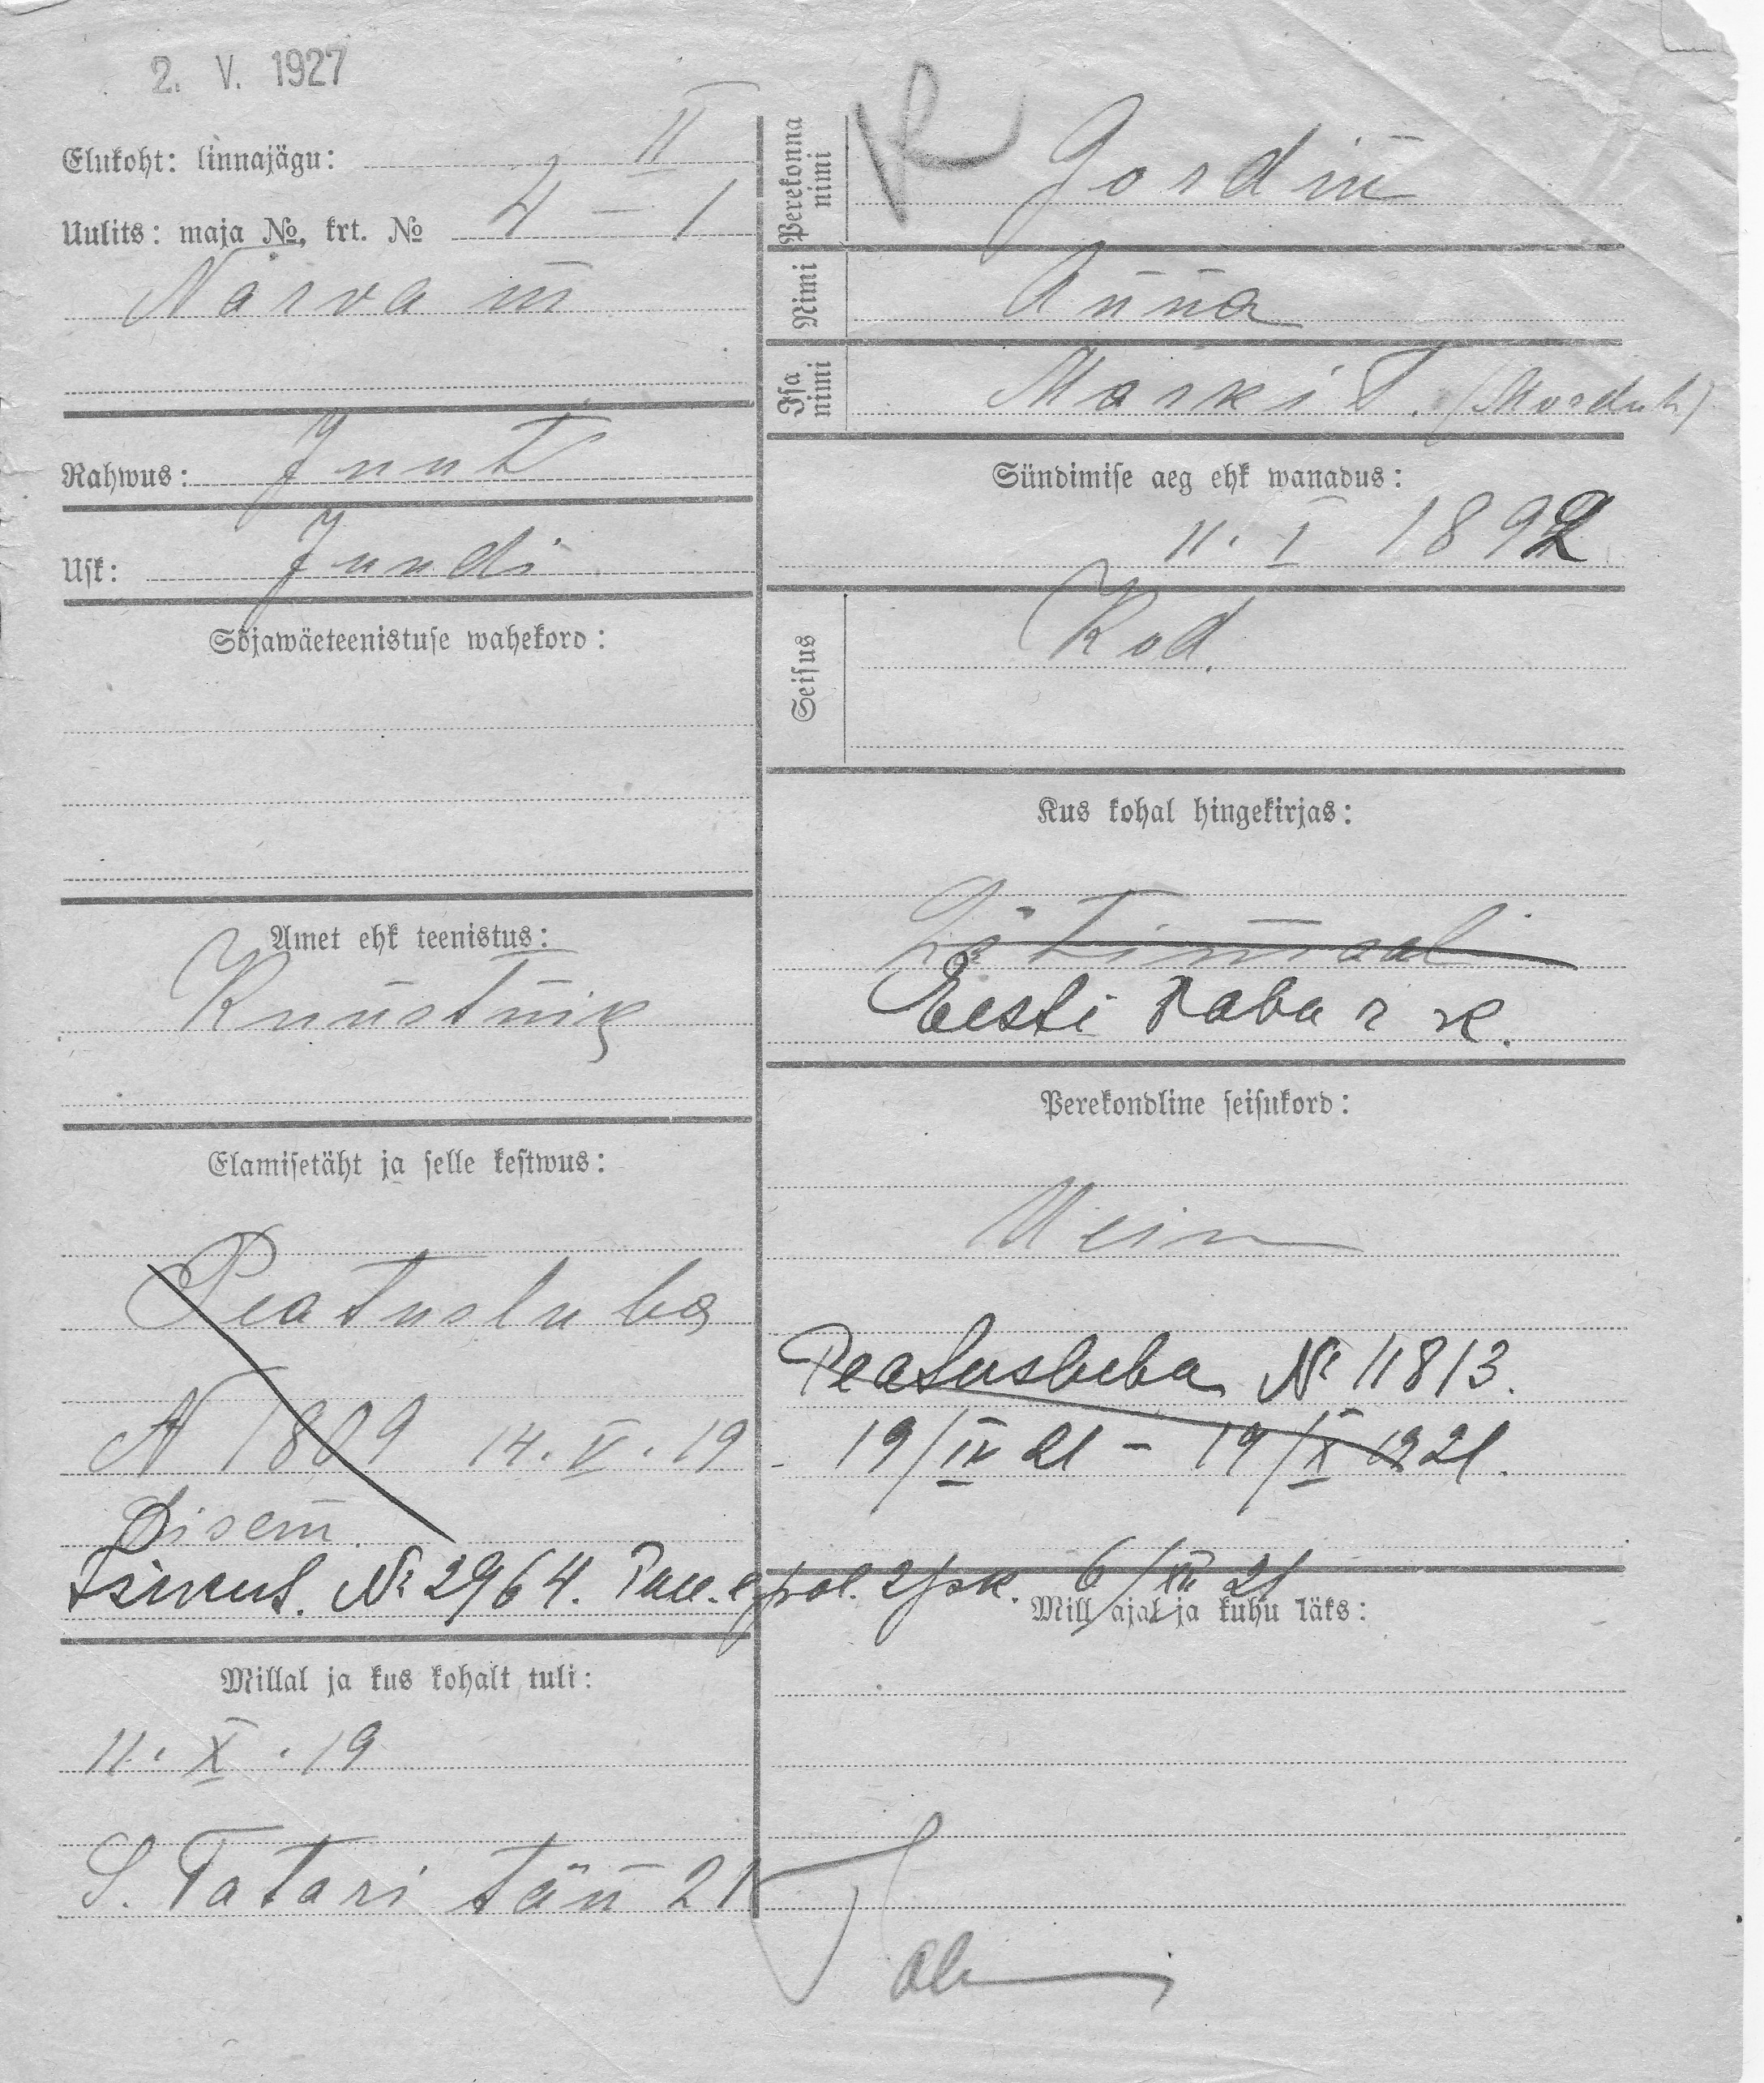 2. V. 1927
Elukoht: linnajägu: II
Uulits: maja No, krt. No 4 – 1
Narva m̄
Rahwus: Juut
Usk: Juudi
Sõjawäeteenistuse wahekord:
Amet ehk teenistus:
Kunstnik
Elamisetäht ja selle kestwus:
Peatusluba
N 1809 14. V. 19
Nr 2964. 6/XII 21
Millal ja kus kohalt tuli:
11. X. 19
S. Tatari tän 21
Perekonna nimi Gordin
Nimi Anna
Isa nimi Marki T. (Morduh)
Sündimise aeg ehk wanadus:
11. I 1892
Seisus
Kod.
Kus kohal hingekirjas:
Lätimaal
Eesti Vaba r. k.
Perekondline seisukord:
Peatusluba Nr 11813.
19/IV 21 – 19/X 1921.
Mill ajal ja kuhu läks: